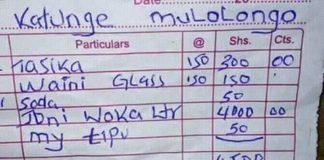 Date
Katunge Mulolongo
Particulars @ Shs. Cts.
Tasika 150 300 00
Waini GLASS 150 150
Soda 50
Joni Woka Ltr 4000 00
my tipu 50